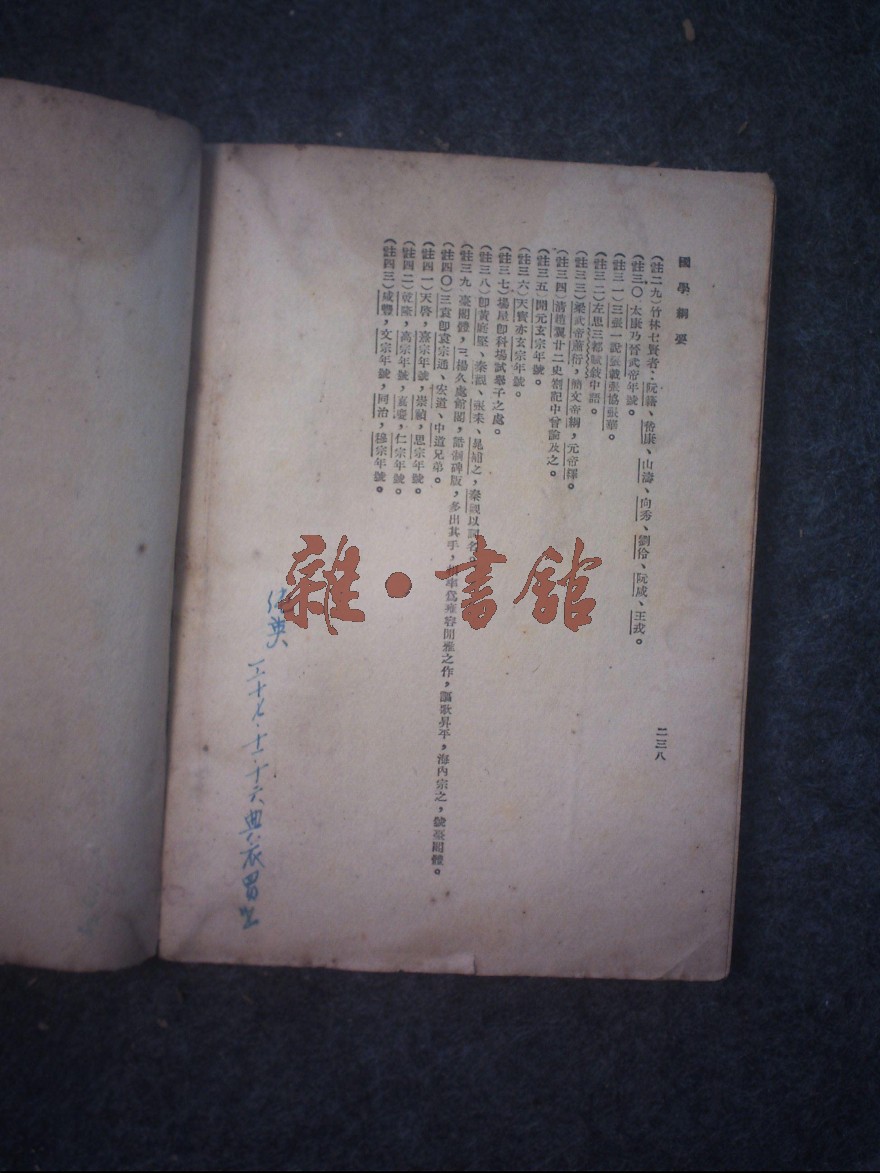 國學綱要
二三八
(註二九)竹林七賢者：阮籍、嵇康、山濤、向秀、劉伶、阮咸、王戎。
(註三〇)太康乃晉武帝年號。
(註三一)三張一說張載張協張華。
(註三二)左思三都賦敍中語。
(註三三)梁武帝蕭衍，簡文帝綱，元帝繹。
(註三四)清趙翼廿二史劄記中曾論及之。
(註三五)開元玄宗年號。
(註三六)天寶亦玄宗年號。
(註三七)場屋即科場試舉子之處。
(註三八)即黃庭堅、秦觀、張耒、晁補之，秦觀以詞名
(註三九)臺閣體，三楊久處館閣，誥制碑版，多出其手，爲雍容閒雅之作，謳歌昇平，海內宗之，號臺閣體。
(註四〇)三袁即袁宗通、宏道、中道兄弟。
(註四一)天啓，熹宗年號，崇禎，思宗年號。
(註四二)乾隆，高宗年號，嘉慶，仁宗年號。
(註四三)咸豐，文宗年號，同治，穆宗年號。
雜·書舘
英
十六